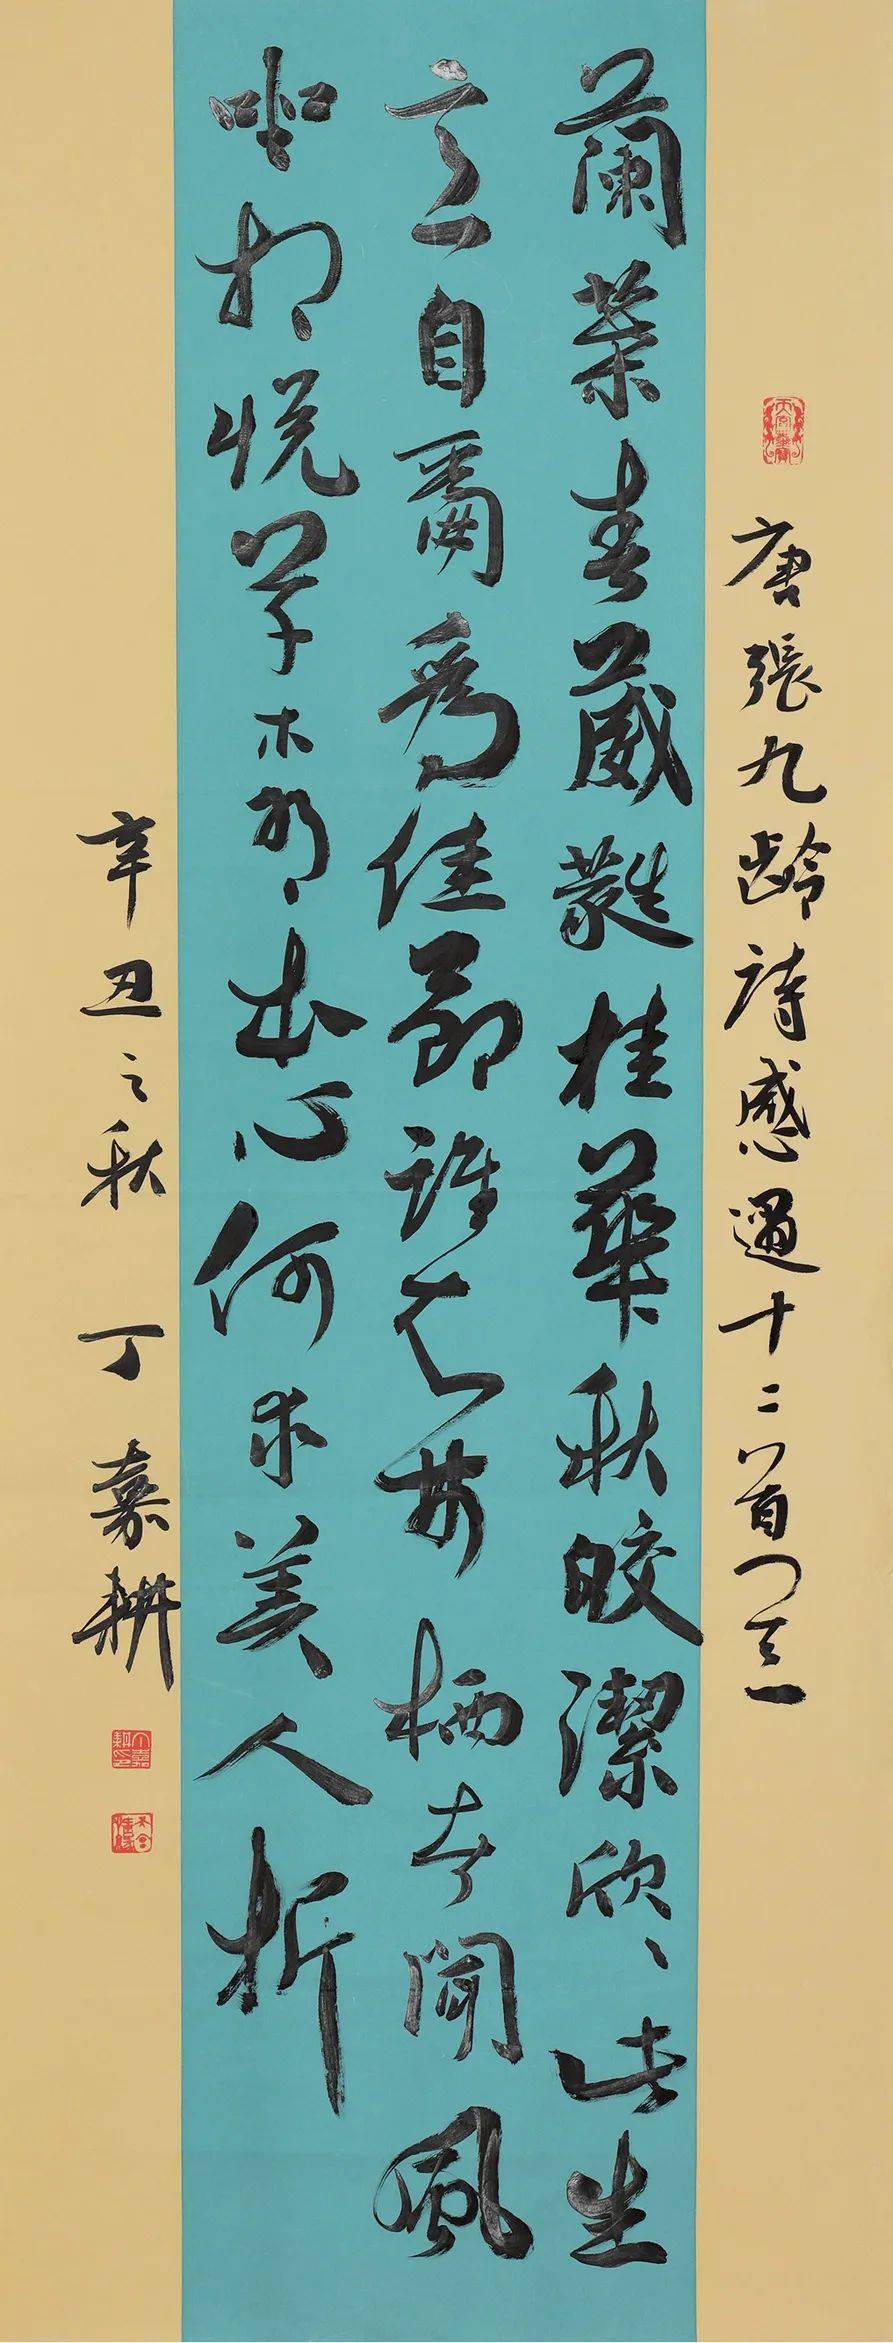 唐張九齡詩感遇十二首之一
蘭葉春葳蕤桂華秋皎潔欣々此生
意自爾為佳節誰知林栖者聞風
坐相悅草木有本心何求美人折
辛丑之秋 丁嘉耕
丁嘉耕印